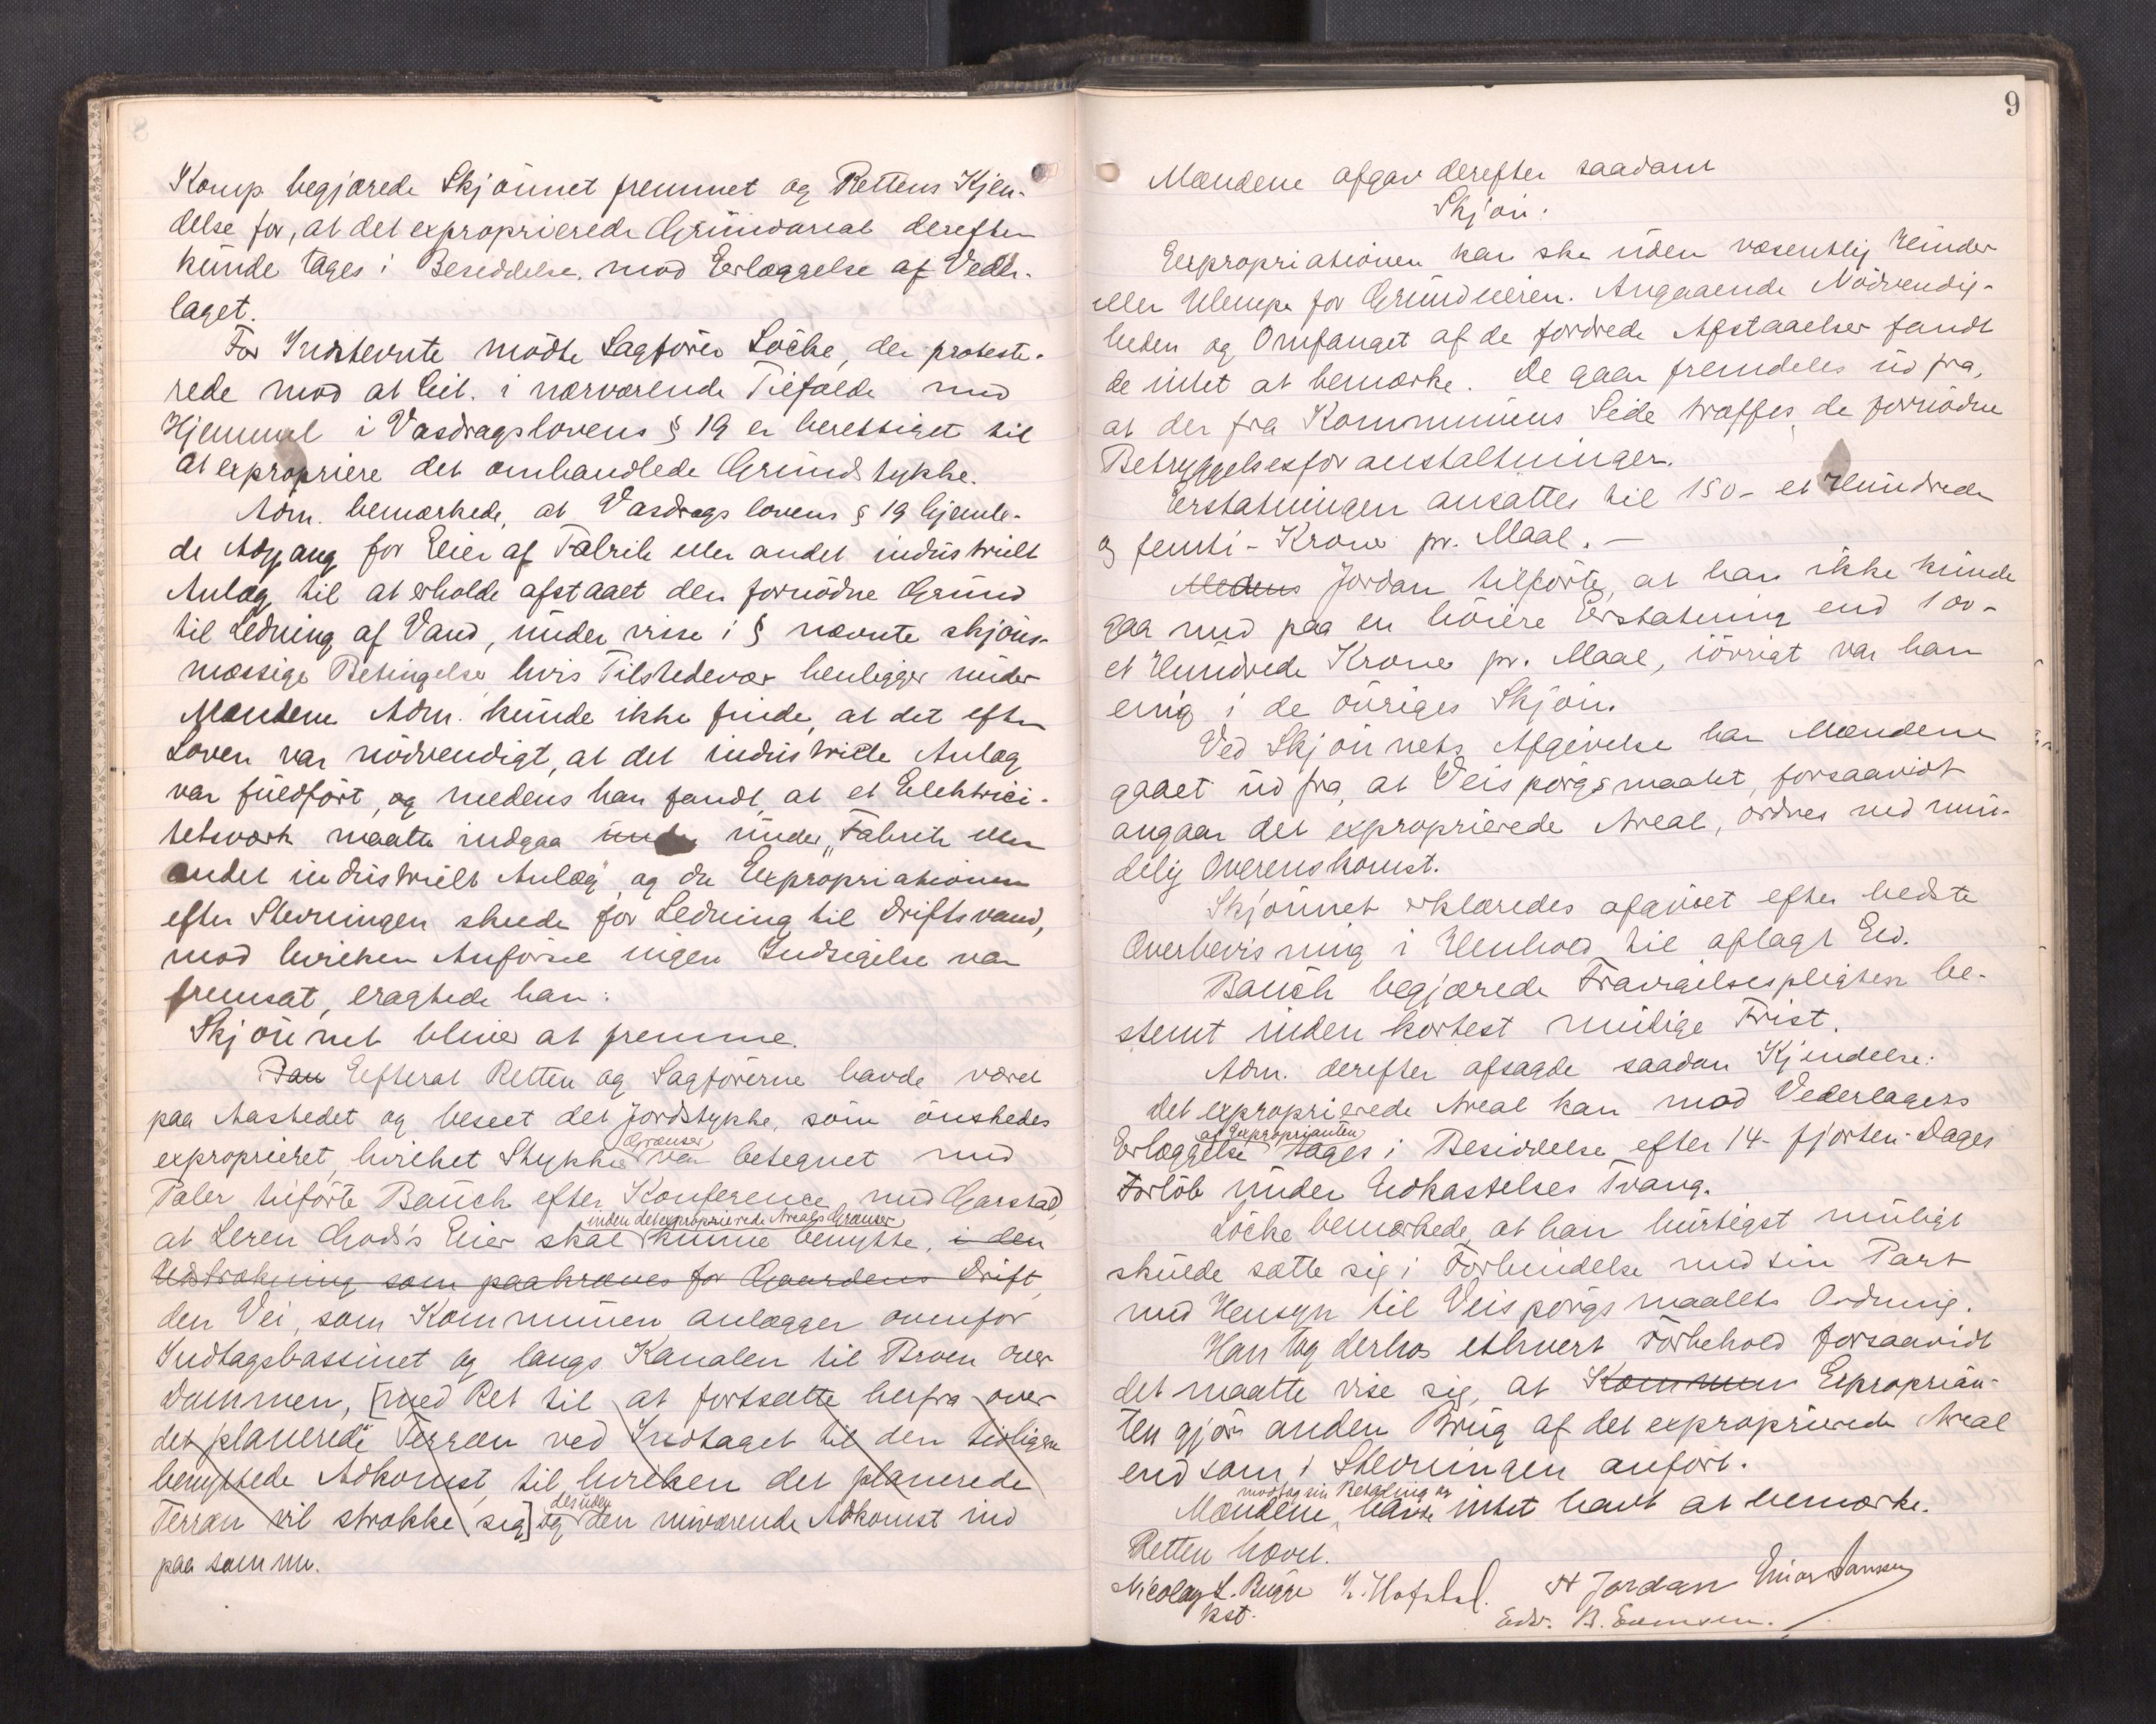 8
Komp begjærede Skjönnet fremmet og Rettens Kjen-
delse for, at det exproprierede Grundareal derefter
kunde tages i Besiddelse mod Erlæggelse af Veder-
laget.
For Indstevnte mödte Sagförer Löcke, der proteste-
rede mod at Cit. i nærværende Tilfælde med
Hjemmel i Vasdragslovens § 19 er berettiget til
at expropriere det omhandlede Grundstykke.
Adm. bemærkede, at Vasdragslovens § 19 hjemle-
de Adgang for Eier af Fabrik eller andet industrielt
Anlæg til at erholde afstaaet den fornödne Grund
til Ledning af Vand, under visse i § nævnte skjöns-
mæssige Betingelser hvis Tilstedevær henligger under
Mændene Adm. kunde ikke finde, at det efter
Loven var nödvendigt, at det industrielle Anlæg
var fuldfört, og medens han fandt, at et Elektrici-
tetsværk maatte indgaa under under "Fabrik eller
andet industrielt Anlæg", og da Expropriationen
efter Stevningen skulde for Ledning til Driftsvand,
mod hvilken Anförsel ingen Indsigelse var
fremsat, eragtede han:
Skjönnet bliver at fremme.
Pau Efterat Retten og Sagförerne havde været
paa Aastedet og beseet det Jordstykke, som önskedes
exproprieret, hvilket Stykkes Grænser var betegnet med
Pæler tilförte Bauck efter Konference med Garstad,
at Leren Gods's Eier skal inden det exproprierede Areals Grænser kunne benytte, i den
Udstrækning som paakræves for Gaardens Drift,
den Vei, som Kommunen anlægger ovenfor
Indtagsbassinet og langs Kanalen til Broen over
Dammen, [med Ret til at fortsætte herfra over
det planerede Terræn ved Indtaget til den tidligere
benyttede Adkomst, til hvilken det planerede
Terræn vil strække sig] og desuden den nuværende Adkomst ind
paa samme.
9
Mændene afgav derefter saadant
Skjön:
Expropriationen kan ske uden væsentlig Hinder
eller Ulempe for Grundeieren. Angaaende Nödvendig-
heden og Omfanget af de fordrede Afstaaelser fandt
de intet at bemærke. De gaar fremdeles ud fra,
at der fra Kommunens Side træffes de fornödne
Betryggelsesforanstaltninger.
Erstatningen ansættes til 150 - et Hundrede
og femti - Kroner pr. Maal. -
Medens Jordan tilförte, at han ikke kunde
gaa med paa en höiere Erstatning end 100 -
et Hundrede Kroner pr. Maal, iövrigt var han
enig i de övriges Skjön.
Ved Skjönnets Afgivelse har Mændene
gaaet ud fra, at Veispörgsmaalet, forsaavidt
angaar det exproprierede Areal, ordnes ved min-
delig Overenskomst.
Skjönnet erklæredes afgivet efter bedste
Overbevisning i Henhold til aflagt Ed.
Bauck begjærede Fravigelsespligten be-
stemt inden kortest mulige Frist.
Adm. derefter afsagde saadan Kjendelse:
Det exproprierede Areal kan mod Vederlagets
Erlæggelse af Exproprianten tages i Besiddelse efter 14 - fjorten - Dages
Forlöb under Udkastelses Tvang.
Löcke bemærkede, at han hurtigst muligt
skulde sætte sig i Forbindelse med sin Part
med Hensyn til Veispörgsmaalets Ordning.
Han tog derhos ethvert Forbehold forsaavidt
det maatte vise sig, at Kommunen Exproprian-
ten gjör anden Brug af det exproprierede Areal
end som i Stevningen anfört.
Mændene modtog sin Betaling og havde intet havt at bemærke.
Retten hævet.
Nicolay L. Bugge L. Hofstad. H Jordan Einar Hansen
kst. Edv. B.